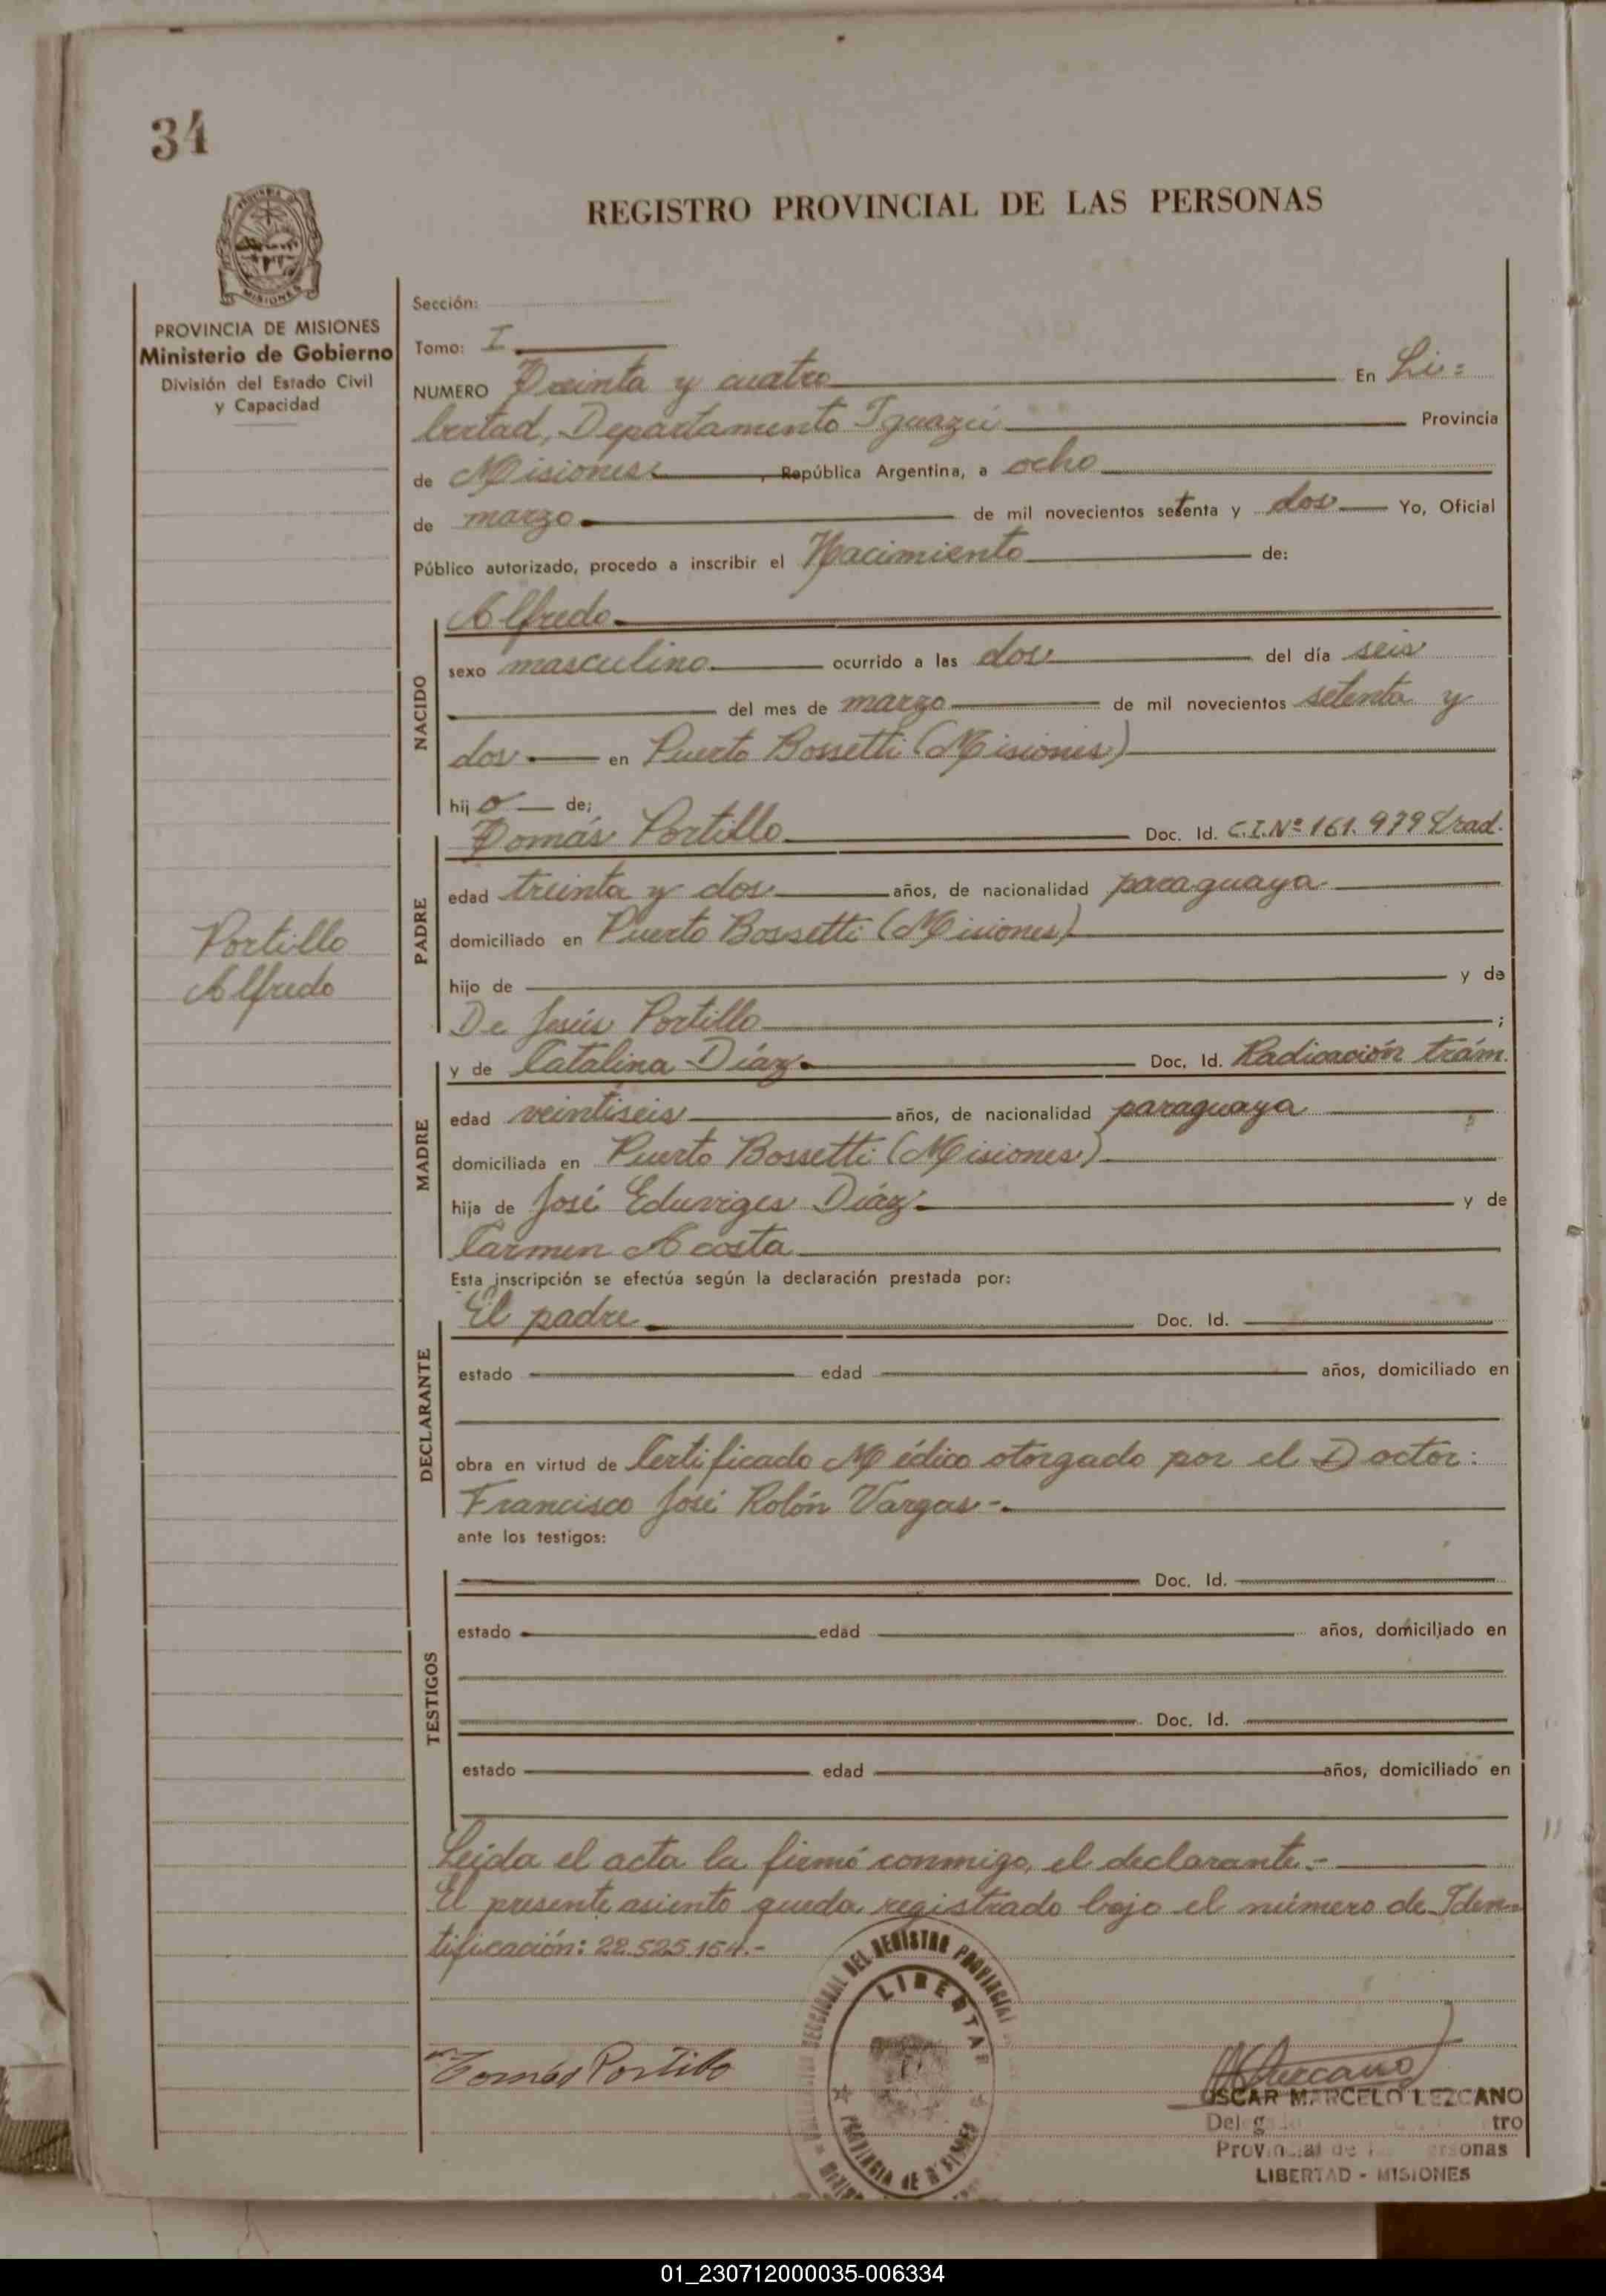 34
MISIONES
PROVINCIA DE MISIONES
Ministerio de Gobierno
División del Estado Civil
y Capacidad
REGISTRO PROVINCIAL DE LAS PERSONAS
Sección:
Tomo: I
NUMERO Treinta y cuatro En Li=
bertad, Departamento Iguazú Provincia
de Misiones, República Argentina, a ocho
de marzo de mil novecientos setenta y dos Yo, Oficial
Público autorizado, procedo a inscribir el Nacimiento de:
NACIDO
Alfredo
sexo masculino ocurrido a las dos del día seis
del mes de marzo de mil novecientos setenta y
dos en Puerto Bossetti (Misiones)
hijo de;
PADRE
Tomás Portillo Doc. Id. C.I.Nº 161.979 Trad.
edad treinta y dos años, de nacionalidad paraguaya
domiciliado en Puerto Bossetti (Misiones)
hijo de y de
De Jesús Portillo ;
Portillo
Alfredo
MADRE
y de Catalina Díaz Doc. Id. Radicación trám.
edad veintiseis años, de nacionalidad paraguaya
domiciliada en Puerto Bossetti (Misiones)
hija de José Eduviges Díaz y de
Carmen Acosta
Esta inscripción se efectúa según la declaración prestada por:
DECLARANTE
El padre Doc. Id.
estado edad años, domiciliado en
obra en virtud de Certificado Médico otorgado por el Doctor:
Francisco José Rolón Vargas-.
ante los testigos:
TESTIGOS
Doc. Id.
estado edad años, domiciliado en
Doc. Id.
estado edad años, domiciliado en
Leída el acta la firmó conmigo, el declarante.-
El presente asiento queda registrado bajo el número de Iden=
tificación: 22.525.154.-
Tomás Portillo
SECCIONAL DEL REGISTRO PROVINCIAL
LIBERTAD
PROVINCIA DE MISIONES
OSCAR MARCELO LEZCANO
Provincial de las Personas
LIBERTAD - MISIONES
01_230712000035-006334